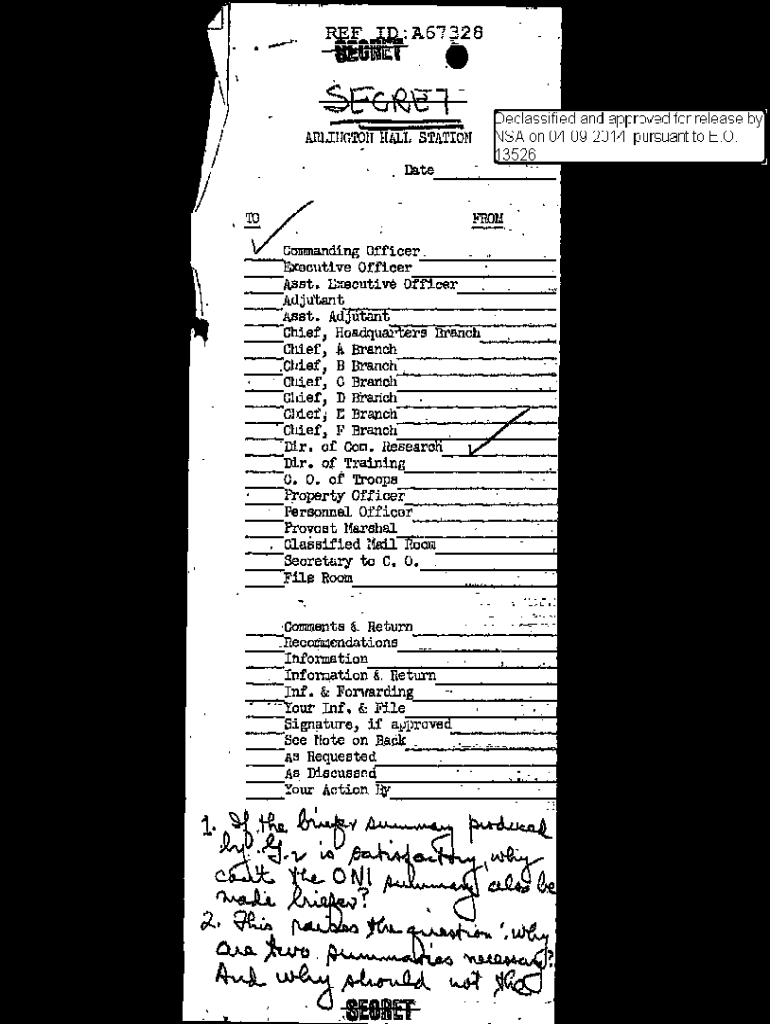 REF ID:A67328
SECRET
SECRET
ARLINGTON HALL STATION
Declassified and approved for release by
NSA on 04 09 2014 pursuant to E.O.
13526
Date
TO FROM
Commanding Officer
Executive Officer
Asst. Executive Officer
Adjutant
Asst. Adjutant
Chief, Headquarters Branch
Chief, A Branch
Chief, B Branch
Chief, C Branch
Chief, D Branch
Chief, E Branch
Chief, F Branch
Dir. of Com. Research
Dir. of Training
C. O. of Troops
Property Officer
Personnel Officer
Provost Marshal
Classified Mail Room
Secretary to C. O.
File Room
Comments & Return
Recommendations
Information
Information & Return
Inf. & Forwarding
Your Inf. & File
Signature, if approved
See Note on Back
As Requested
As Discussed
Your Action By
1. If the briefer summary produced
by G-2 is satisfactory, why
can't the ONI summary also be
made briefer?
2. This raises the question: why
are two summaries necessary?
And why should not the
SECRET